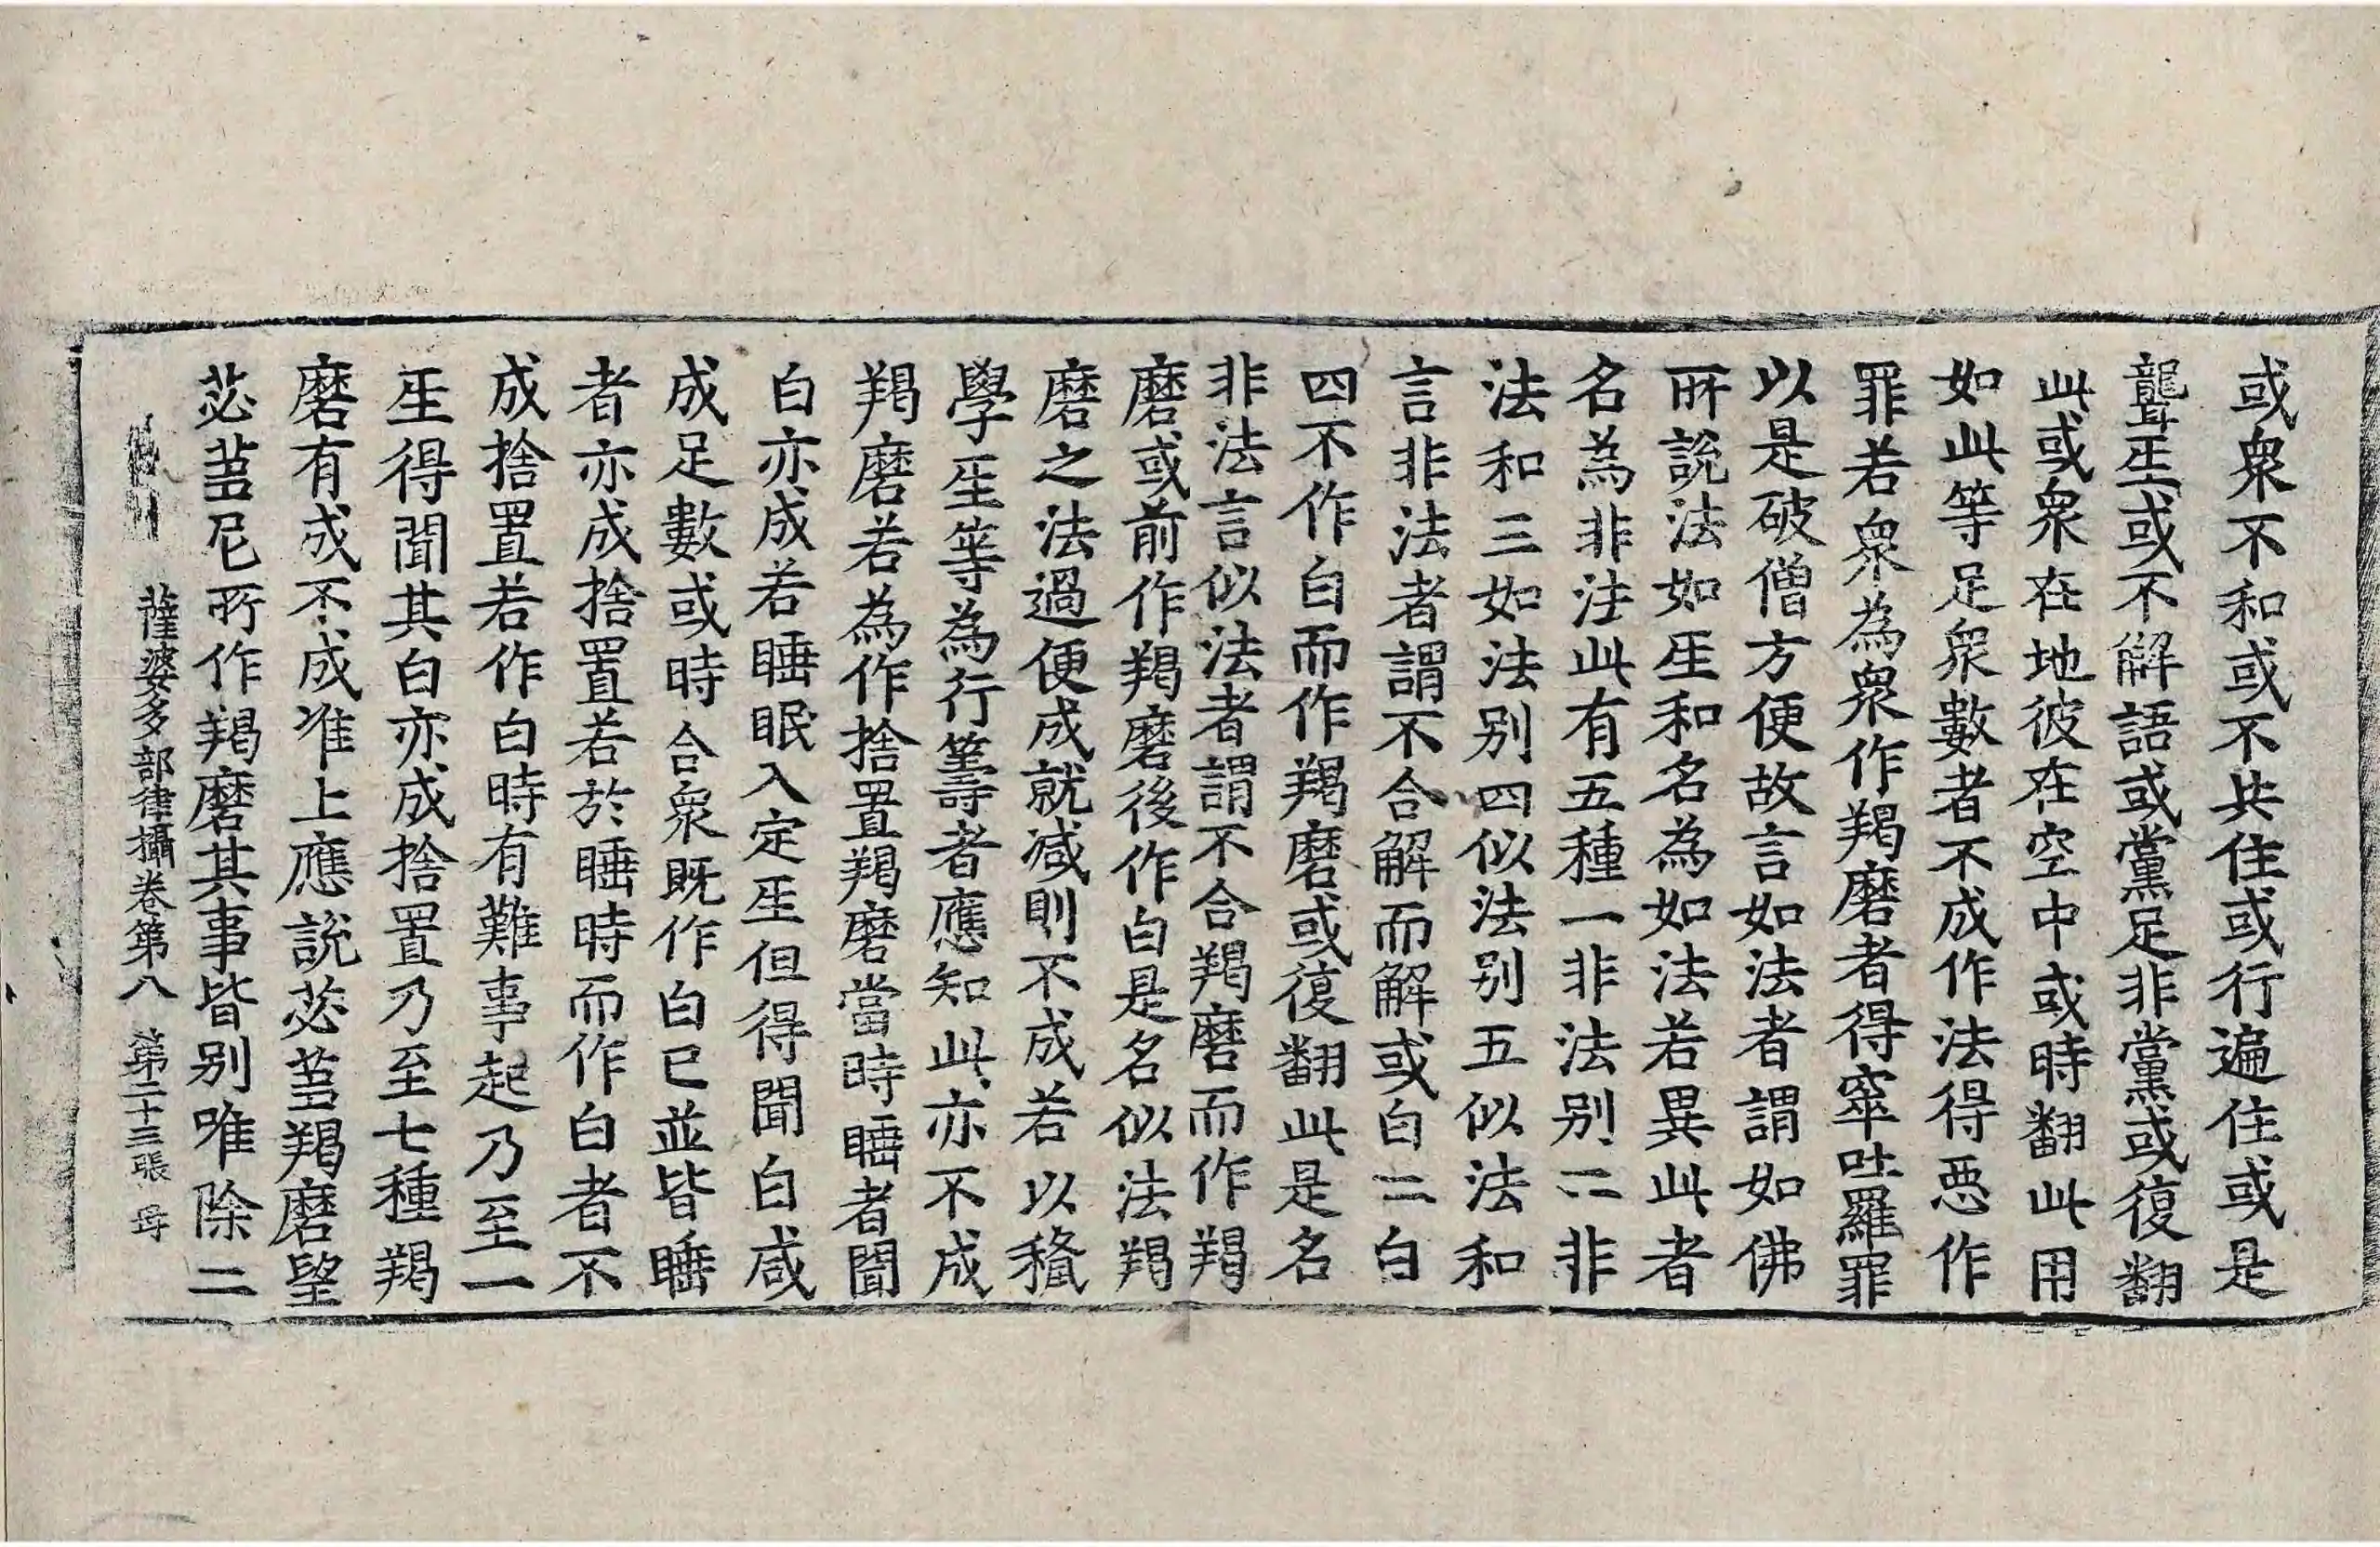 或衆不和或不共住或行遍住或是
聾𤯔或不解語或黨足非黨或復翻
此或衆在地彼在空中或時翻此用
如此等足衆數者不成作法得惡作
罪若衆為衆作羯磨者得窣吐羅罪
以是破僧方便故言如法者謂如佛
所說法如𤯔和名為如法若異此者
名為非法此有五種一非法别二非
法和三如法别四似法别五似法和
言非法者謂不合解而解或白二白
四不作白而作羯磨或復翻此是名
非法言似法者謂不合羯磨而作羯
磨或前作羯磨後作白是名似法羯
磨之法過便成就減則不成若以穢
學𤯔等為行籌者應知此亦不成
羯磨若為作捨置羯磨當時睡者聞
白亦成若睡眠入定𤯔但得聞白咸
成足數或時合衆既作白已並皆睡
者亦成捨置若於睡時而作白者不
成捨置若作白時有難事起乃至一
𤯔得聞其白亦成捨置乃至七種羯
磨有成不成准上應説苾芻羯磨望
苾芻尼所作羯磨其事皆别唯除二
薩婆多部律攝卷第八 第二十三張 母